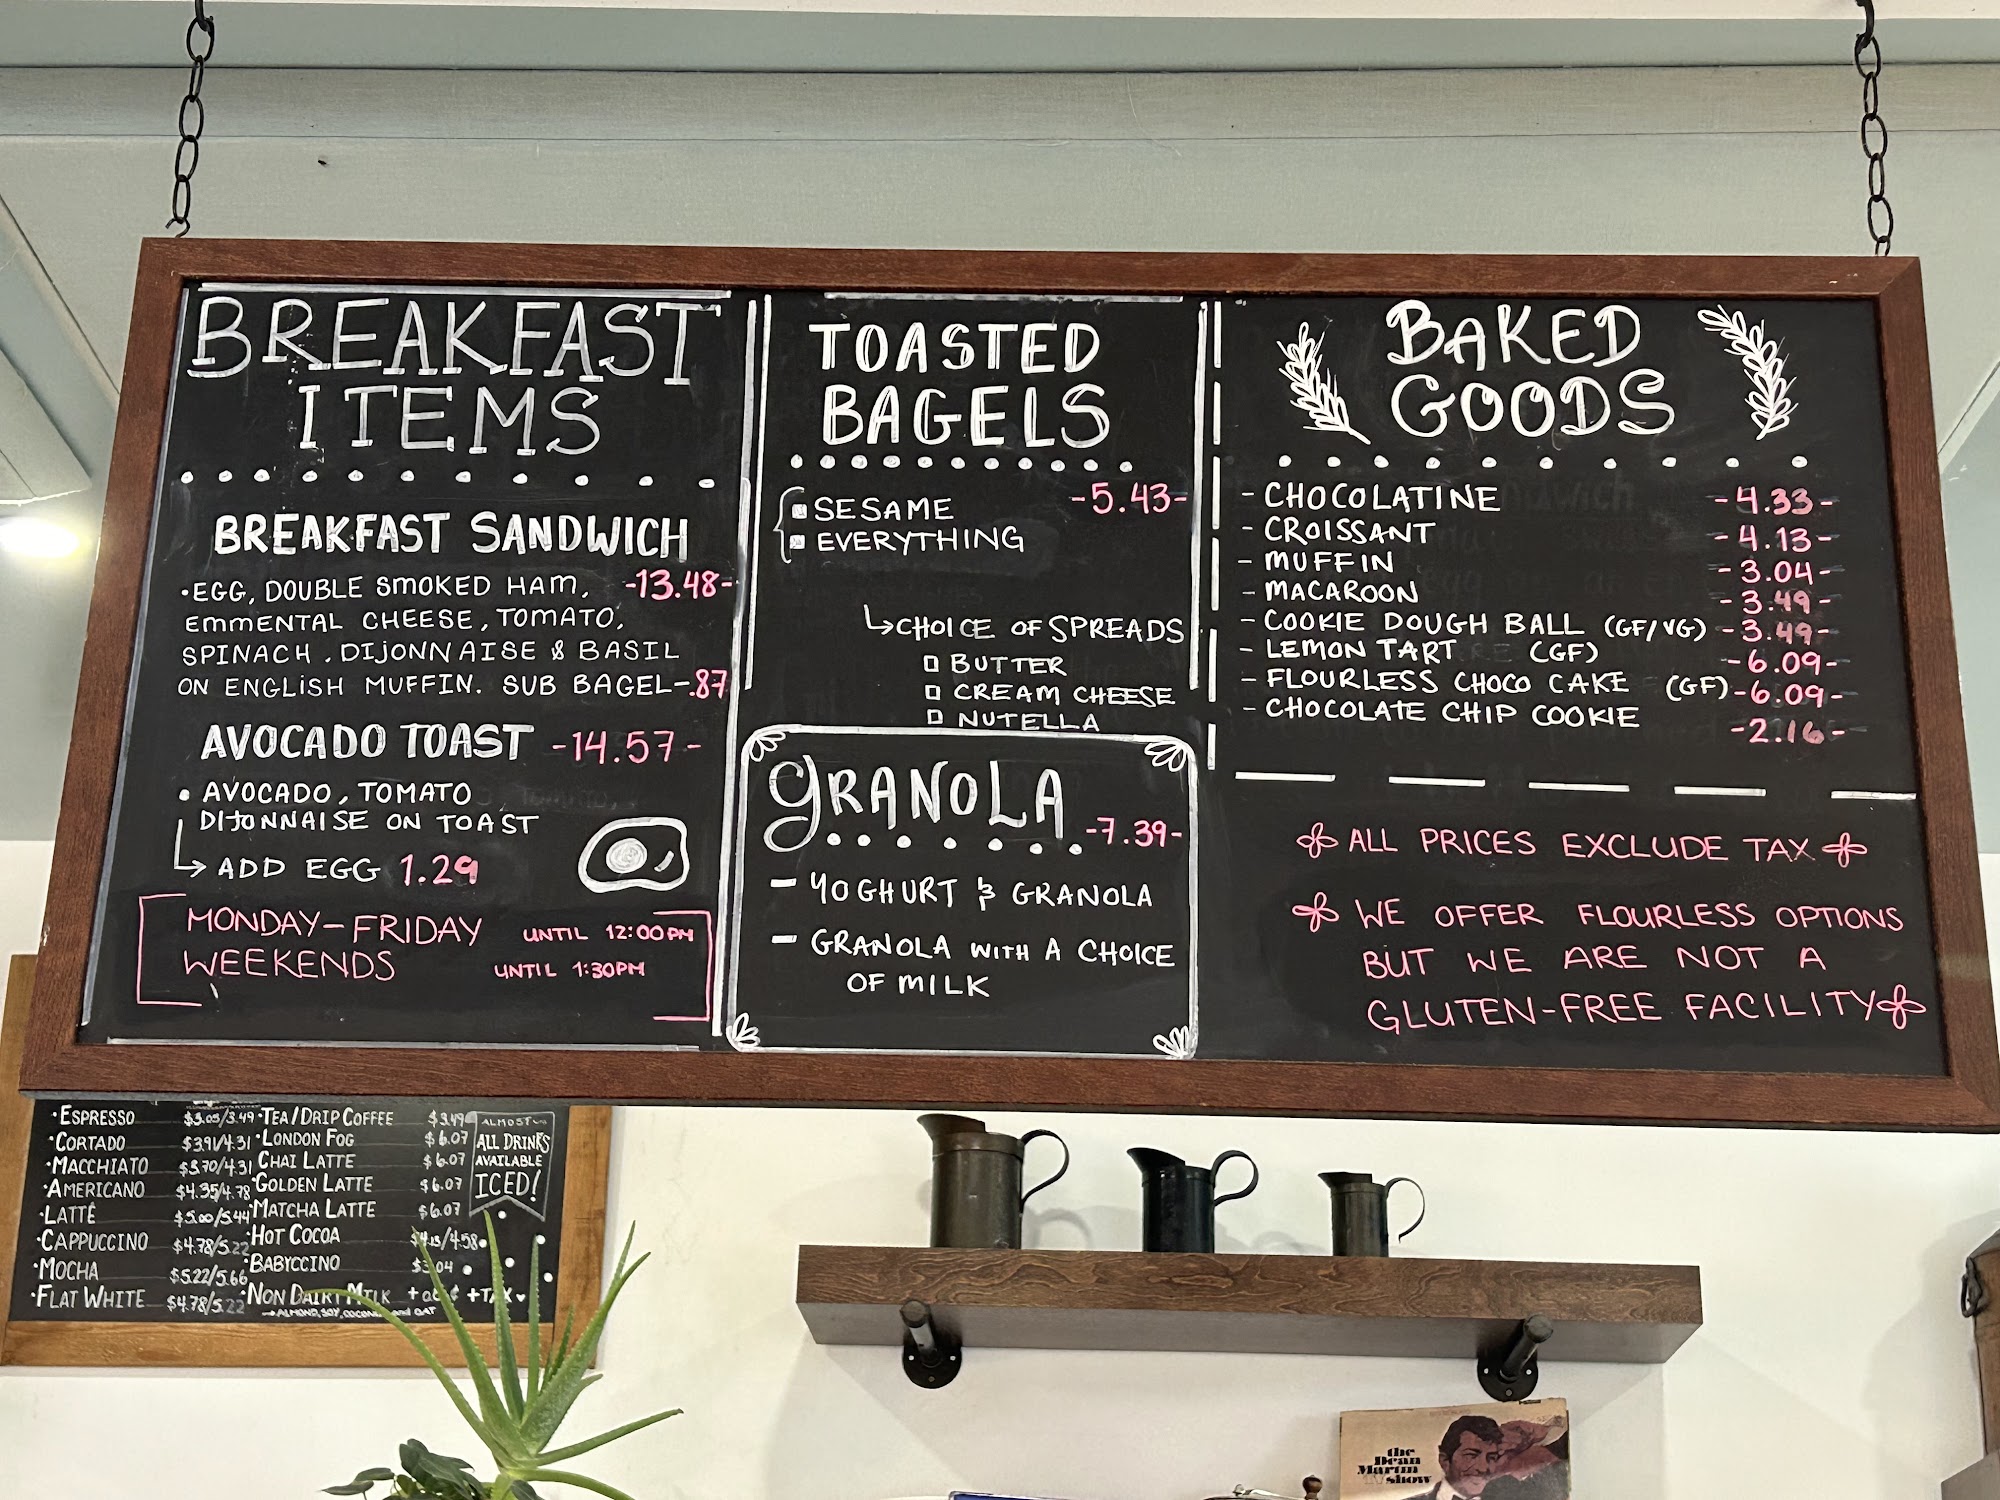 BREAKFAST
ITEMS
BREAKFAST SANDWICH
•EGG, DOUBLE SMOKED HAM, -13.48-
EMMENTAL CHEESE, TOMATO,
SPINACH, DIJONNAISE & BASIL
ON ENGLISH MUFFIN. SUB BAGEL-.87
AVOCADO TOAST -14.57-
• AVOCADO, TOMATO
DIJONNAISE ON TOAST
↳ ADD EGG 1.29
MONDAY-FRIDAY UNTIL 12:00PM
WEEKENDS UNTIL 1:30PM
TOASTED
BAGELS
SESAME -5.43-
EVERYTHING
↳CHOICE OF SPREADS
BUTTER
CREAM CHEESE
NUTELLA
GRANOLA -7.39-
- YOGHURT & GRANOLA
- GRANOLA WITH A CHOICE
OF MILK
BAKED
GOODS
- CHOCOLATINE -4.33-
- CROISSANT -4.13-
- MUFFIN -3.04-
- MACAROON -3.49-
- COOKIE DOUGH BALL (GF/VG) -3.49-
- LEMON TART (GF) -6.09-
- FLOURLESS CHOCO CAKE (GF) -6.09-
- CHOCOLATE CHIP COOKIE -2.16-
ALL PRICES EXCLUDE TAX
WE OFFER FLOURLESS OPTIONS
BUT WE ARE NOT A
GLUTEN-FREE FACILITY
•ESPRESSO $3.05/3.49
•CORTADO $3.91/4.31
•MACCHIATO $3.70/4.31
•AMERICANO $4.35/4.78
•LATTÉ $5.00/5.44
•CAPPUCCINO $4.78/5.22
•MOCHA $5.22/5.66
•FLAT WHITE $4.78/5.22
•TEA/DRIP COFFEE $3.49
•LONDON FOG $6.07
CHAI LATTE $6.07
•GOLDEN LATTE $6.07
•MATCHA LATTE $6.07
•HOT COCOA /4.58
•BABYCCINO
•NON DAIRY MILK + TAX
→ALMOND, SOY, COCONUT and OAT
ALMOST
ALL DRINKS
AVAILABLE
ICED!
the
Dean
Martin
TV show